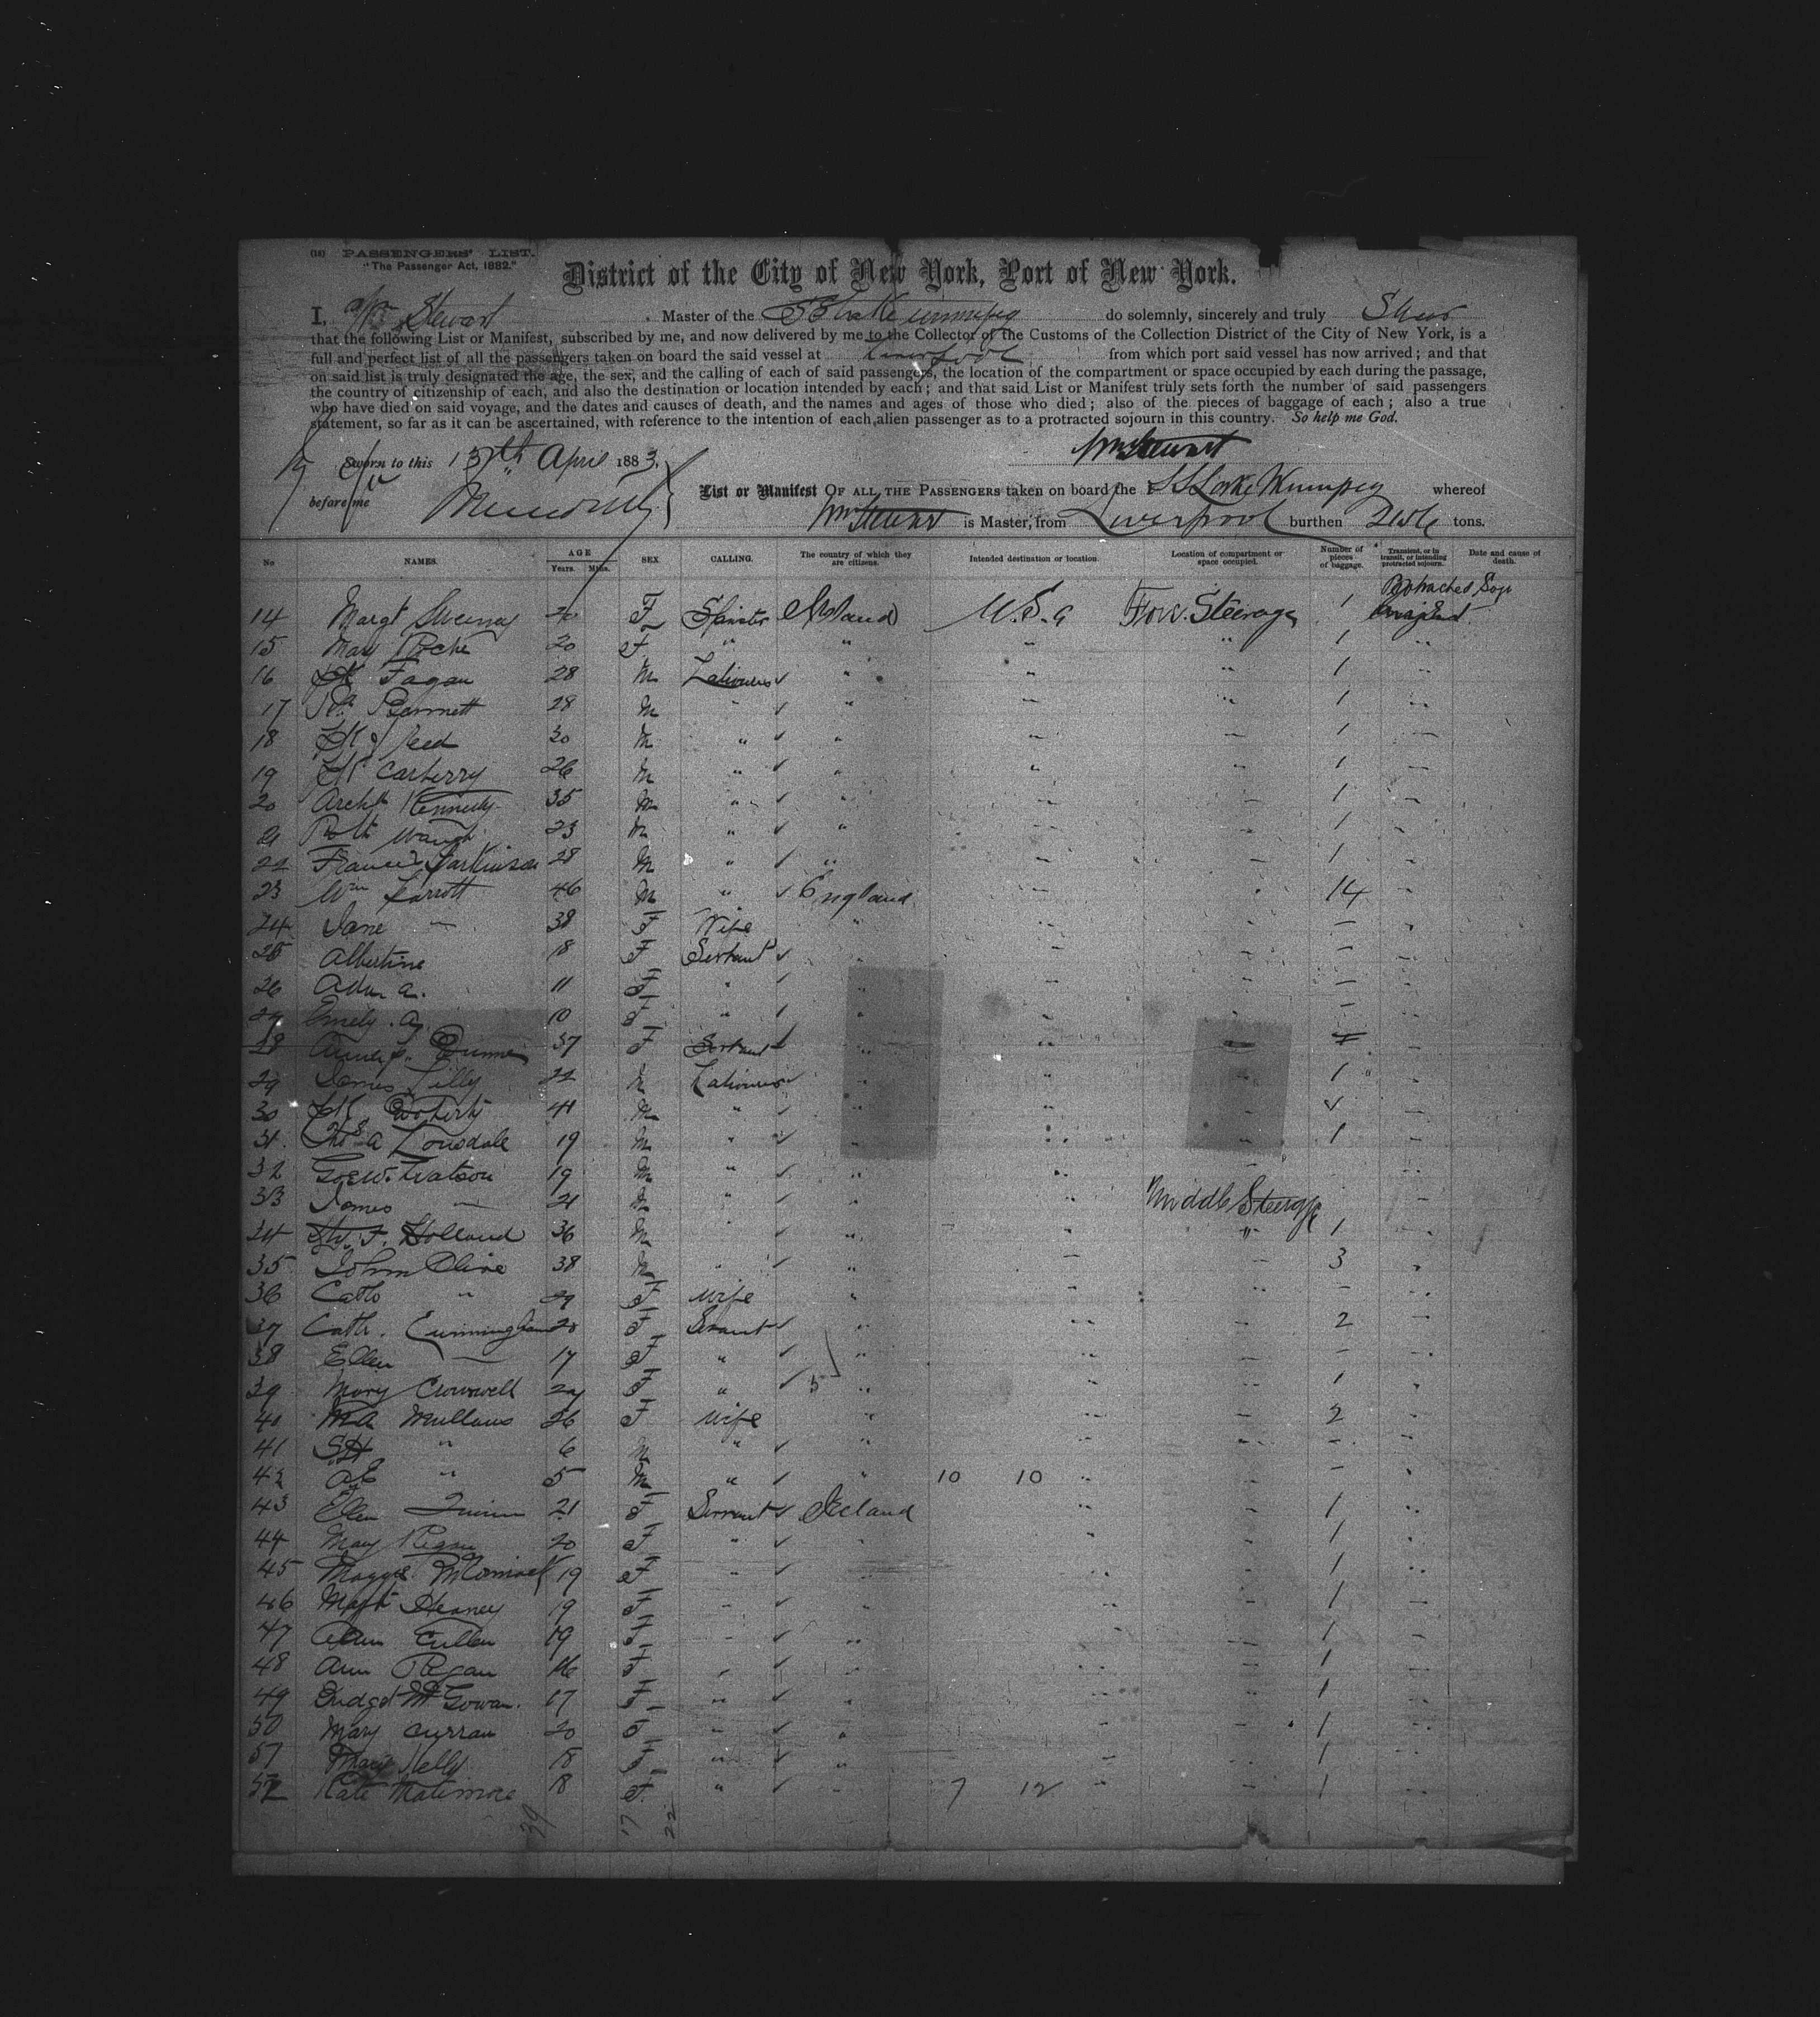 (13) PASSENGERS' LIST.
"The Passenger Act, 1882."
District of the City of New York, Port of New York.
I, Wm Stewart Master of the SS Lake Winnipeg do solemnly, sincerely and truly Swear
that the following List or Manifest, subscribed by me, and now delivered by me to the Collector of the Customs of the Collection District of the City of New York, is a
full and perfect list of all the passengers taken on board the said vessel at Liverpool from which port said vessel has now arrived; and that
on said list is truly designated the age, the sex, and the calling of each of said passengers, the location of the compartment or space occupied by each during the passage,
the country of citizenship of each, and also the destination or location intended by each; and that said List or Manifest truly sets forth the number of said passengers
who have died on said voyage, and the dates and causes of death, and the names and ages of those who died; also of the pieces of baggage of each; also a true
statement, so far as it can be ascertained, with reference to the intention of each alien passenger as to a protracted sojourn in this country. So help me God.
Sworn to this 13th April 1883. Wm Stewart
before me
List or Manifest OF ALL THE PASSENGERS taken on board the SS Lake Winnipeg whereof
Wm Stewart is Master, from Liverpool burthen 2156 tons.
No NAMES. AGE Years. Mths. SEX CALLING. The country of which they are citizens. Intended destination or location Location of compartment or space occupied. Number of pieces of baggage. Transient, or in transit, or intending protracted sojourn. Date and cause of death.
14 Margt Sweeney 20 F Spinster Ireland U.S.a Forw. Steerage 1 Protracted Soj
15 Mary Roche 20 F " " " " 1 "
16 Fagan 28 M Labourer " " " 1 "
17 Bennett 28 M " " " " 1 "
18 Reed 30 M " " " " 1 "
19 Carberry 26 M " " " " 1 "
20 Archd Kennedy 35 M " " " " 1 "
21 Robt Waugh 23 M " " " " 1 "
22 Francis Parkinson 28 M " " " " 1 "
23 Wm Garrott 46 M " England " " 14 "
24 Jane " 38 F Wife " " " -
25 Albertine 18 F Servant " " " -
26 Ada a. 11 F " " " " -
27 Emily a 10 F " " " " -
28 37 F Servant " " "
29 James Lilly 22 M Labourer " " " 1 "
30 Doherty 41 M " " " " "
31 Thos A Lonsdale 19 M " " " " 1 "
32 Geo W. Watson 19 M " " "
33 James " 21 M " " " Middle Steerage "
34 Holland 36 M " " " " 1 "
35 John Cline 38 M " " " " 3 "
36 Cath " 29 F wife " " " -
37 Cath. Cunningham 28 F Servant " " " 2 "
38 Ellen " 17 F " " " " - "
39 Mary Cromwell F " 5 " " " 1 "
40 MA Mullans 26 F wife " " " 2 "
41 SH " 6 M " " " " - "
42 AE " 5 M " " 10 10 " " - "
43 Ellen Quinn 21 F Servant Ireland " " 1 "
44 Mary Regan 20 F " " " " 1 "
45 Maggie 19 F " " " " 1 "
46 Margt Heaney 19 F " " " " 1 "
47 Ann Cullen 19 F " " " " 1 "
48 Ann Regan 16 F " " " " 1 "
49 Bridget McGowan. 17 F " " " " 1 "
50 Mary Curran 20 F " " " " 1 "
51 Mary Kelly 18 F " " " " 1 "
52 Kate Matimore 18 F. " 7 12 " " 1 "
39 17 22